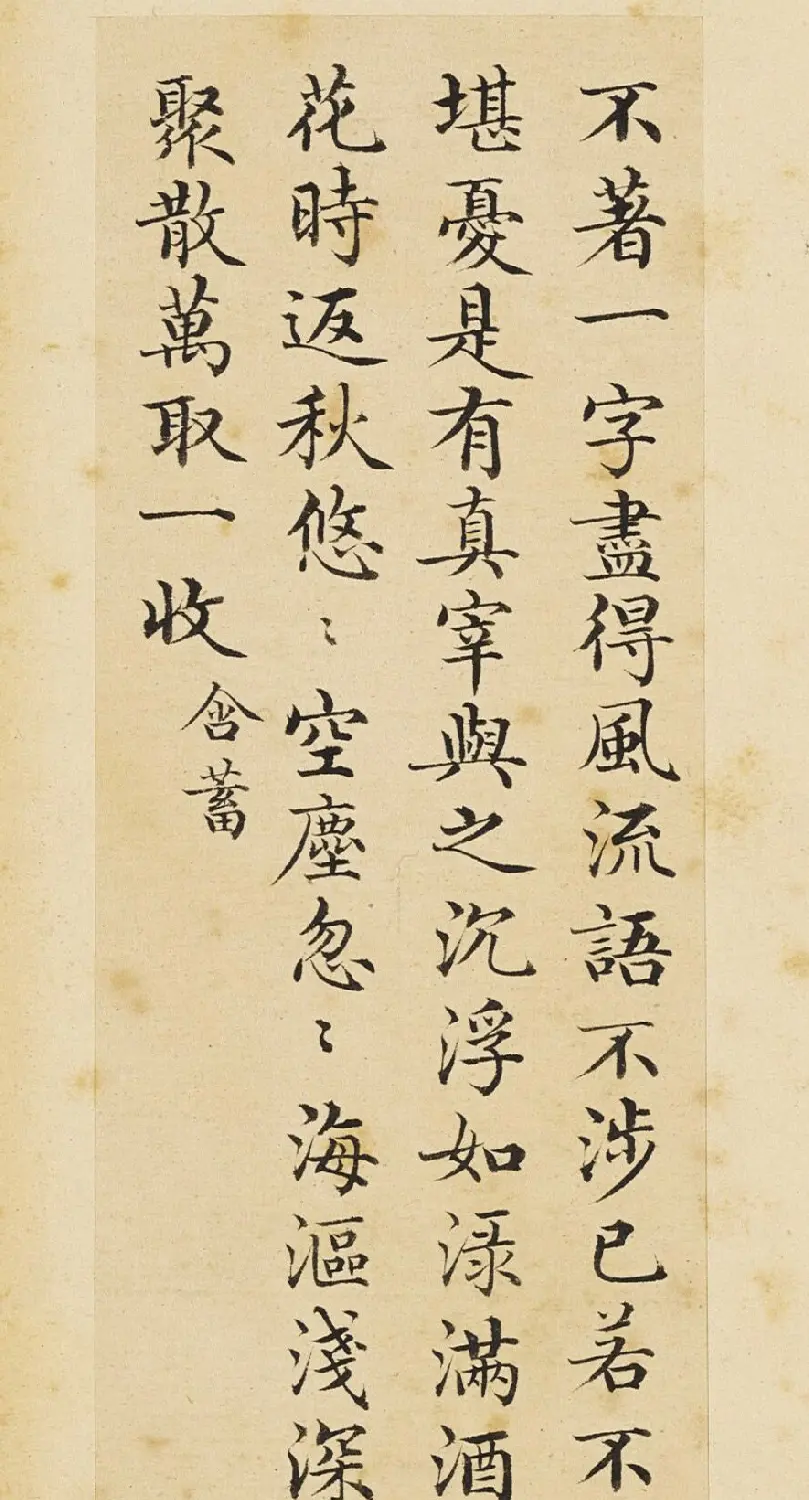 不著一字盡得風流語不涉已若不
堪憂是有真宰與之沉浮如渌滿酒
花時返秋悠〻空塵忽〻海漚淺深
聚散萬取一收含蓄